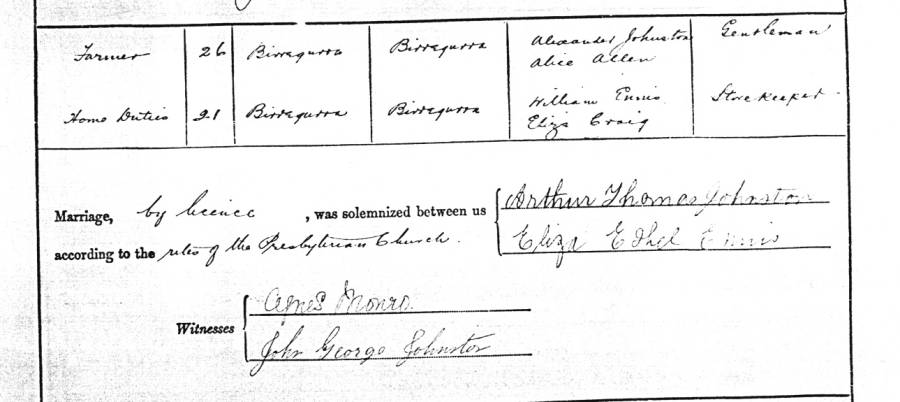 Farmer 26 Birregurra Birregurra Alexander Johnston Gentleman
Alice Allen
Home Duties 21 Birregurra Birregurra William Ennis Store Keeper
Eliza Craig
Marriage, by licence , was solemnized between us Arthur Thomas Johnston
according to the rites of the Presbyterian Church. Eliza Ethel Ennis
Witnesses Agnes Monro
John George Johnston